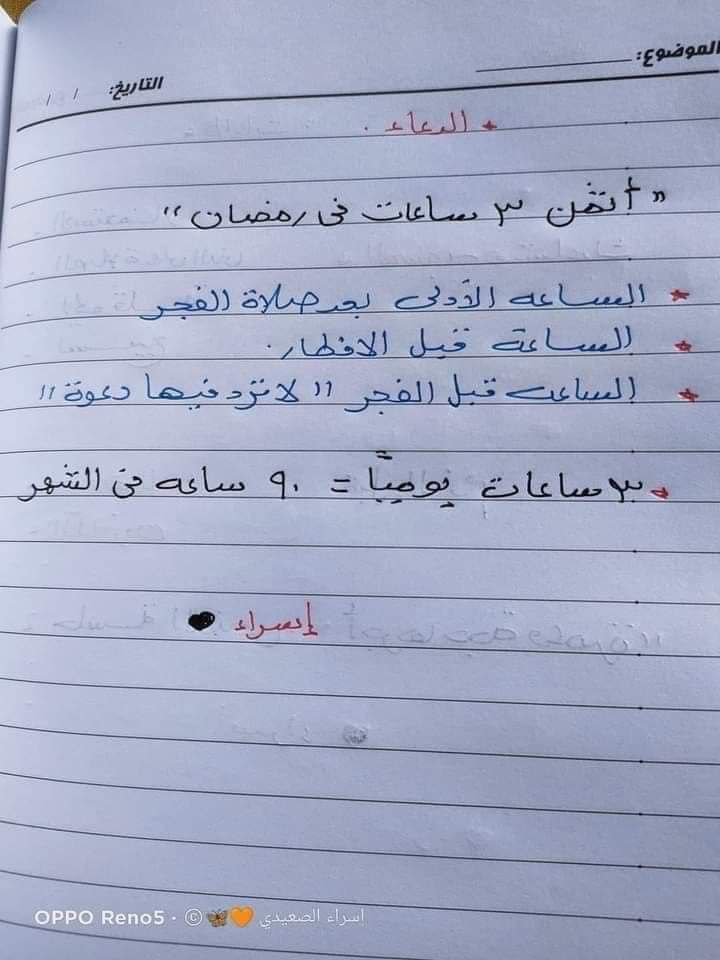 الموضوع:
التاريخ: / /
* الدعاء .
"أثمن ٣ ساعات فى رمضان"
* الساعه الأولى بعد صلاة الفجر
* الساعة قبل الافطار.
* الساعه قبل الفجر "لا تُرد فيها دعوة"
* ٣ ساعات يومياً = ٩٠ ساعه فى الشهر
إسراء 🖤
OPPO Reno5 · © 🦋🧡 إسراء الصعيدي